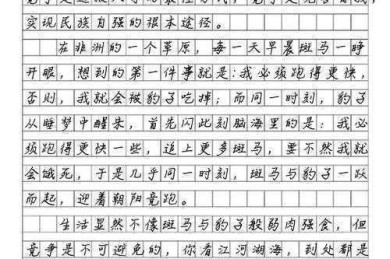 实现民族自强的根本途径。
在非洲的一个草原，每一天早晨斑马一睁
开眼，想到的第一件事就是：我必须跑得更快，
否则，我就会被豹子吃掉；而同一时刻，豹子
从睡梦中醒来，首先闪此刻脑海里的是：我必
须跑得更快一些，追上更多斑马，要不然我就
会饿死，于是几乎同一时刻，斑马与豹子一跃
而起，迎着朝阳竞跑。
生活显然不像斑马与豹子般弱肉强食，但
竞争是不可避免的，你看江河湖海，到处都是